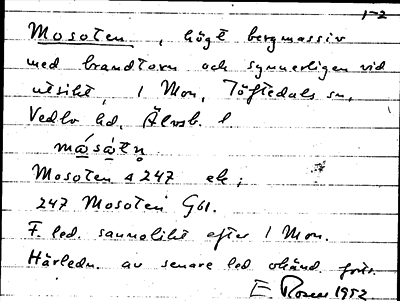 1-2
Mosoten, högt bergmassiv
med brandtorn och synnerligen vid
utsikt, i Mon, Töftedals sn,
Vedbo hd, Älvsb. l
måsåtn̥
Mosoten a 247 ek;
247 Mosoten Gbl.
F. led. sannolikt efter i Mon.
Härledn. av senare led okänd.
E Rosen 1952